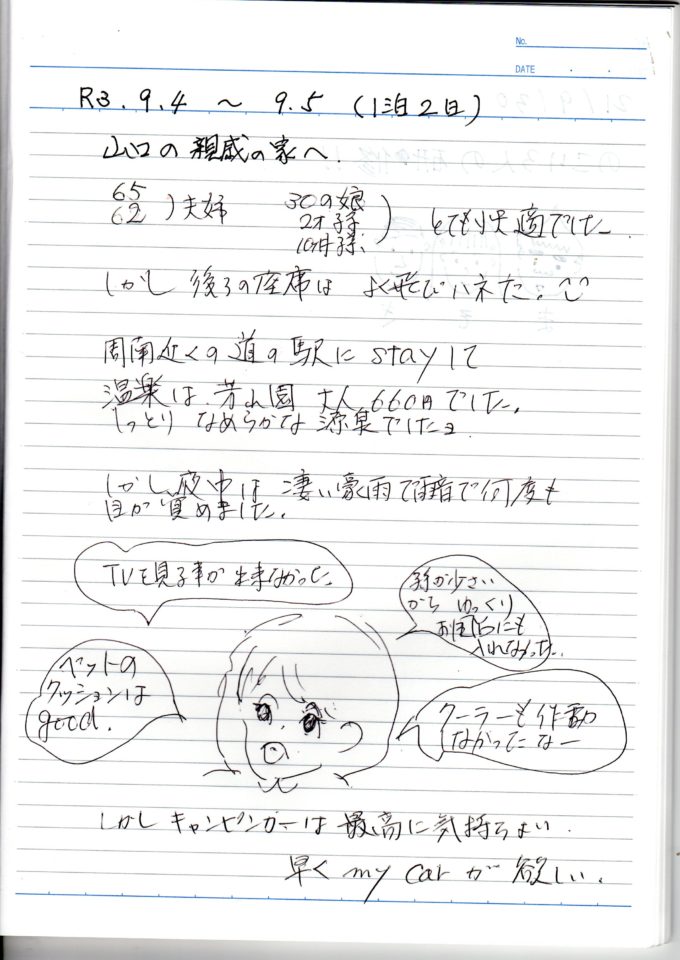 No.
DATE
R3.9.4 〜 9.5 (1泊2日)
山口の親戚の家へ.
65
62 )夫婦
30の娘
2才孫
10ヶ月孫 ) とても快適でした.
しかし後ろの座席はよく飛びハネた。
周南近くの道の駅にstayして
温泉は、芳山園 大人660円でした。
しっとりなめらかな源泉でしたヨ
しかし夜中は凄い豪雨で雨音で何度も
目が覚めました.
TVを見る事が出来なかった
孫が少さい
から ゆっくり
お風呂にも
入れなかった..
ベットの
クッションは
good.
クーラーも作動
なかったなー
しかしキャンピンカーは最高に気持ちよい.
早くmy carが欲しい.